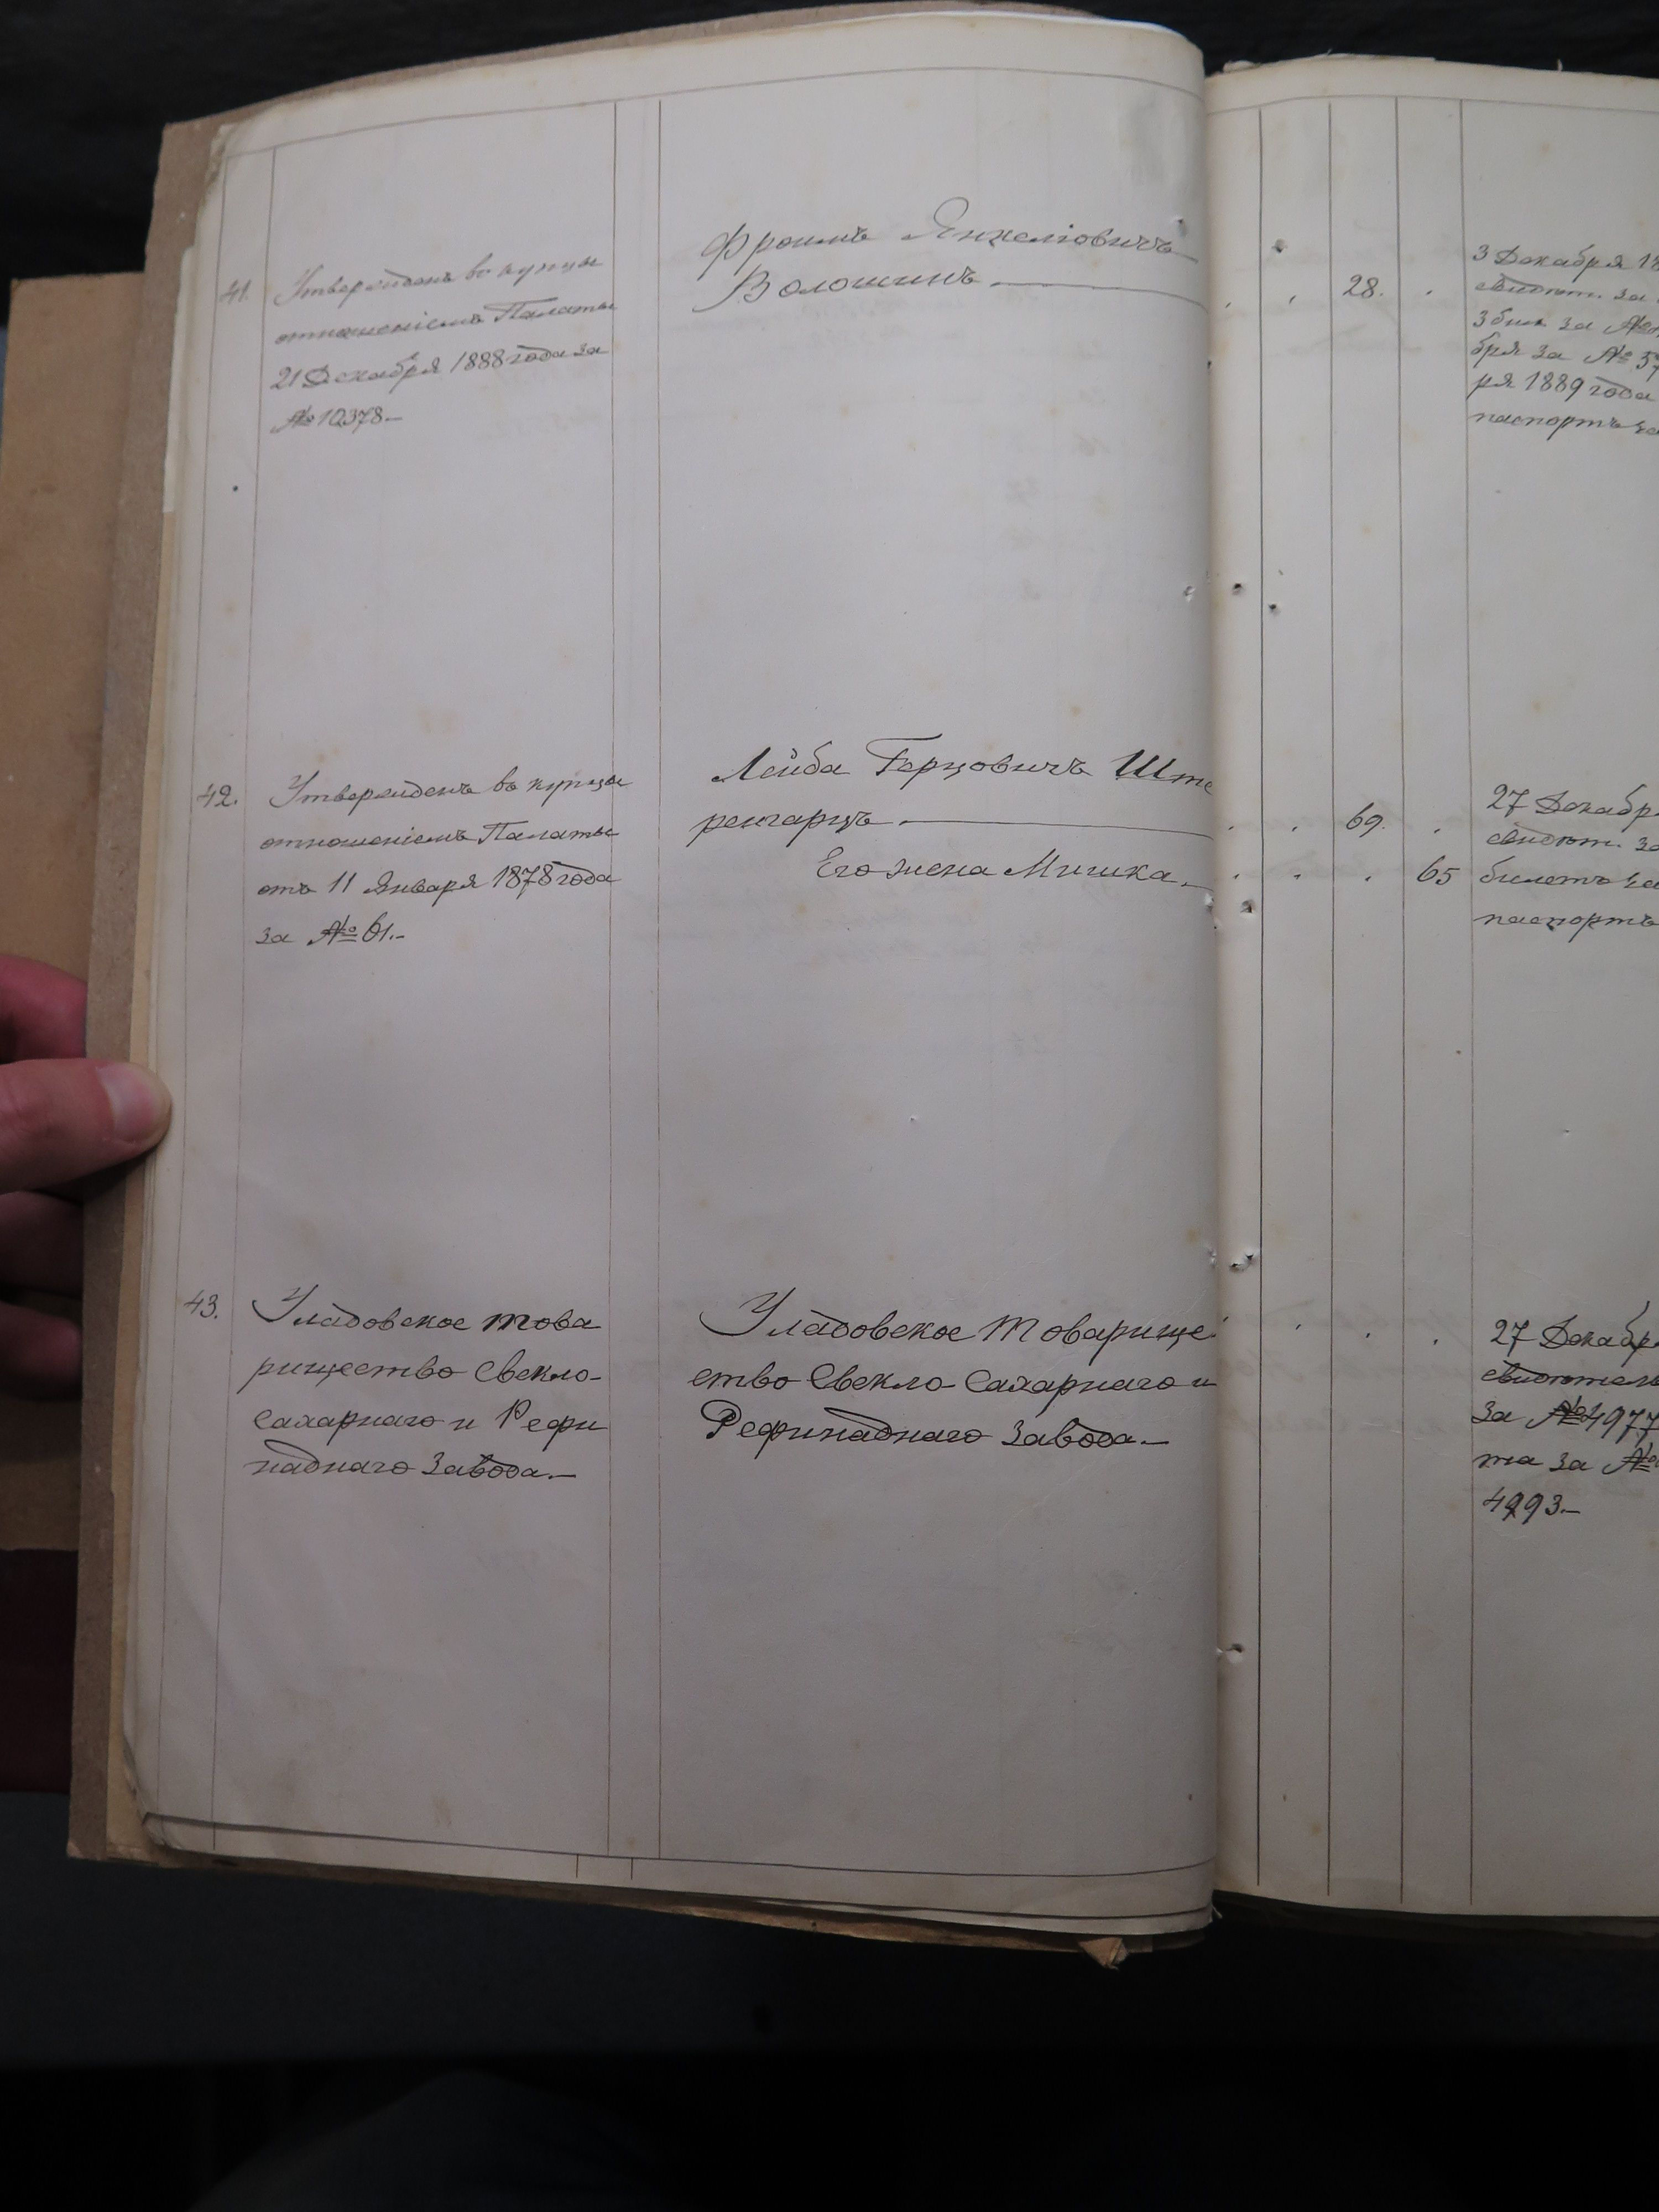 41.
Утвержденъ въ купцы
отношеніемъ Палаты
21 Декабря 1888 года за
№ 10378.—
Фроимъ Янкеліовичъ
Волошинъ
28.
3 Декабря 18
свидѣт. за
3 бил за №
бря за № 37
ря 1889 года
паспортъ за
42.
Утвержденъ въ купцы
отношеніемъ Палаты
отъ 11 Января 1878 года
за № 61.—
Лейба Герцовичъ Ште
ренгарцъ
Его жена Мишка.
69.
65
27 Декабр
свидѣт. за
билетъ за
паспортъ
43.
Уладовское това
рищество Свекло-
Сахарнаго и Рефи
наднаго Завода.—
Уладовское Товарище
ство Свекло-Сахарнаго и
Рафинаднаго Завода.—
27 Декабр
свидѣтель
за № 4977
та за №
4993.—